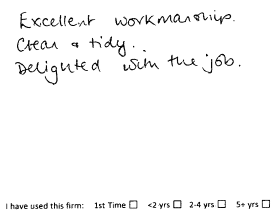 Excellent workmanship.
Clean & tidy..
Delighted with the job.
I have used this firm: 1st Time ☐ <2 yrs ☐ 2-4 yrs ☐ 5+ yrs ☐